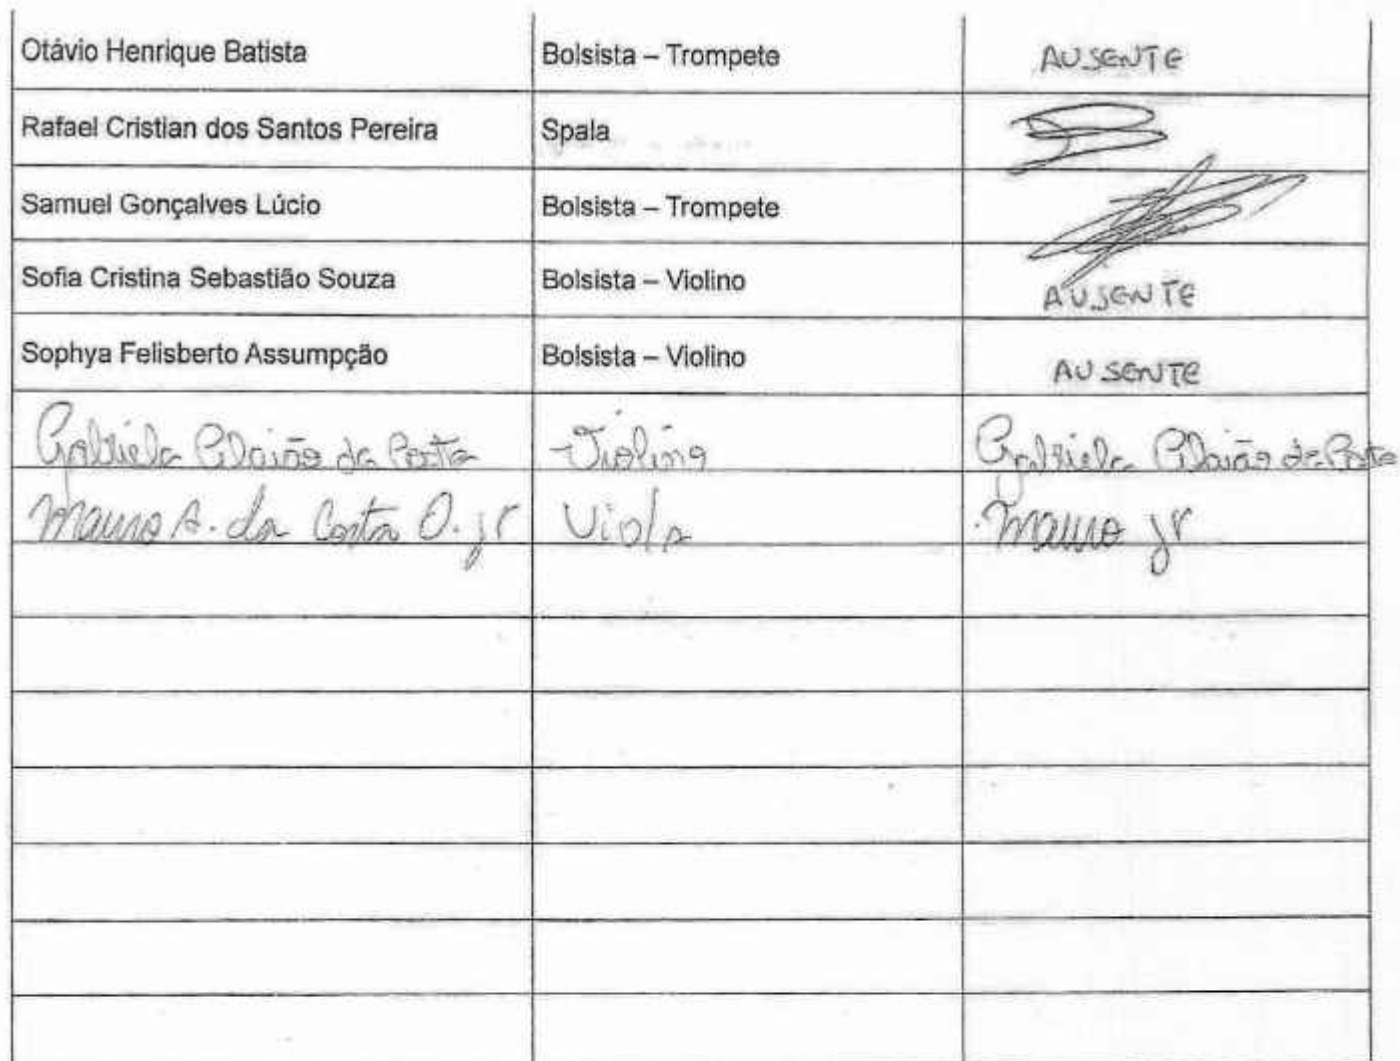 Otávio Henrique Batista Bolsista – Trompete AUSENTE
Rafael Cristian dos Santos Pereira Spala
Samuel Gonçalves Lúcio Bolsista – Trompete
Sofia Cristina Sebastião Souza Bolsista – Violino AUSENTE
Sophya Felisberto Assumpção Bolsista – Violino AUSENTE
Gabriela da Costa Violino Gabriela da Costa
Mauro A. da Costa O. Jr Viola Mauro Jr